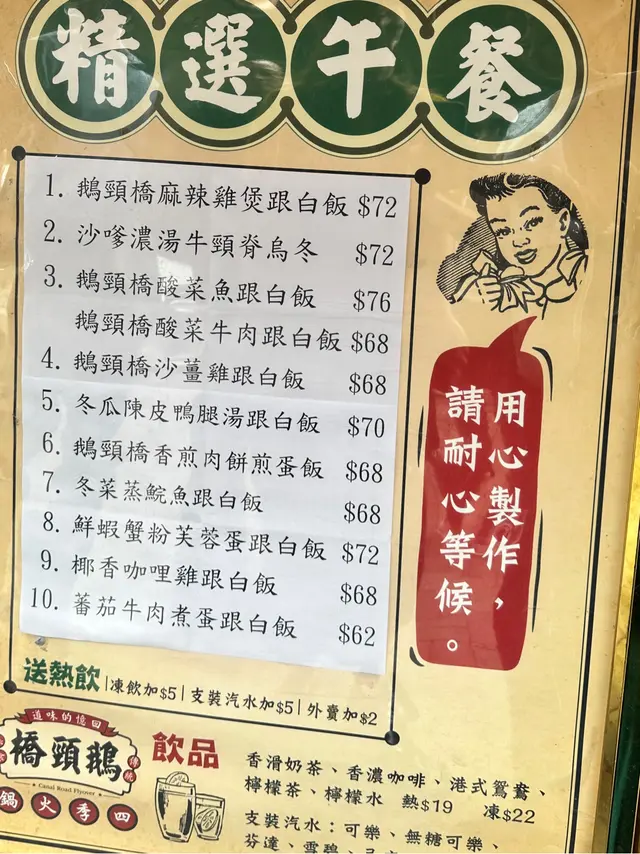 精選午餐
1. 鵝頸橋麻辣雞煲跟白飯 $72
2. 沙嗲濃湯牛頸脊烏冬 $72
3. 鵝頸橋酸菜魚跟白飯 $76
鵝頸橋酸菜牛肉跟白飯 $68
4. 鵝頸橋沙薑雞跟白飯 $68
5. 冬瓜陳皮鴨腿湯跟白飯 $70
6. 鵝頸橋香煎肉餅煎蛋飯 $68
7. 冬菜蒸鯇魚跟白飯 $68
8. 鮮蝦蟹粉芙蓉蛋跟白飯 $72
9. 椰香咖哩雞跟白飯 $68
10. 蕃茄牛肉煮蛋跟白飯 $62
用心製作，
請耐心等候。
送熱飲|凍飲加$5|支裝汽水加$5|外賣加$2
道味的憶回
橋頸鵝
傳統
Canal Road Flyover
鍋火季四
飲品
香滑奶茶、香濃咖啡、港式鴛鴦、
檸檬茶、檸檬水 熱$19 凍$22
支裝汽水：可樂、無糖可樂、
芬達、雪碧、